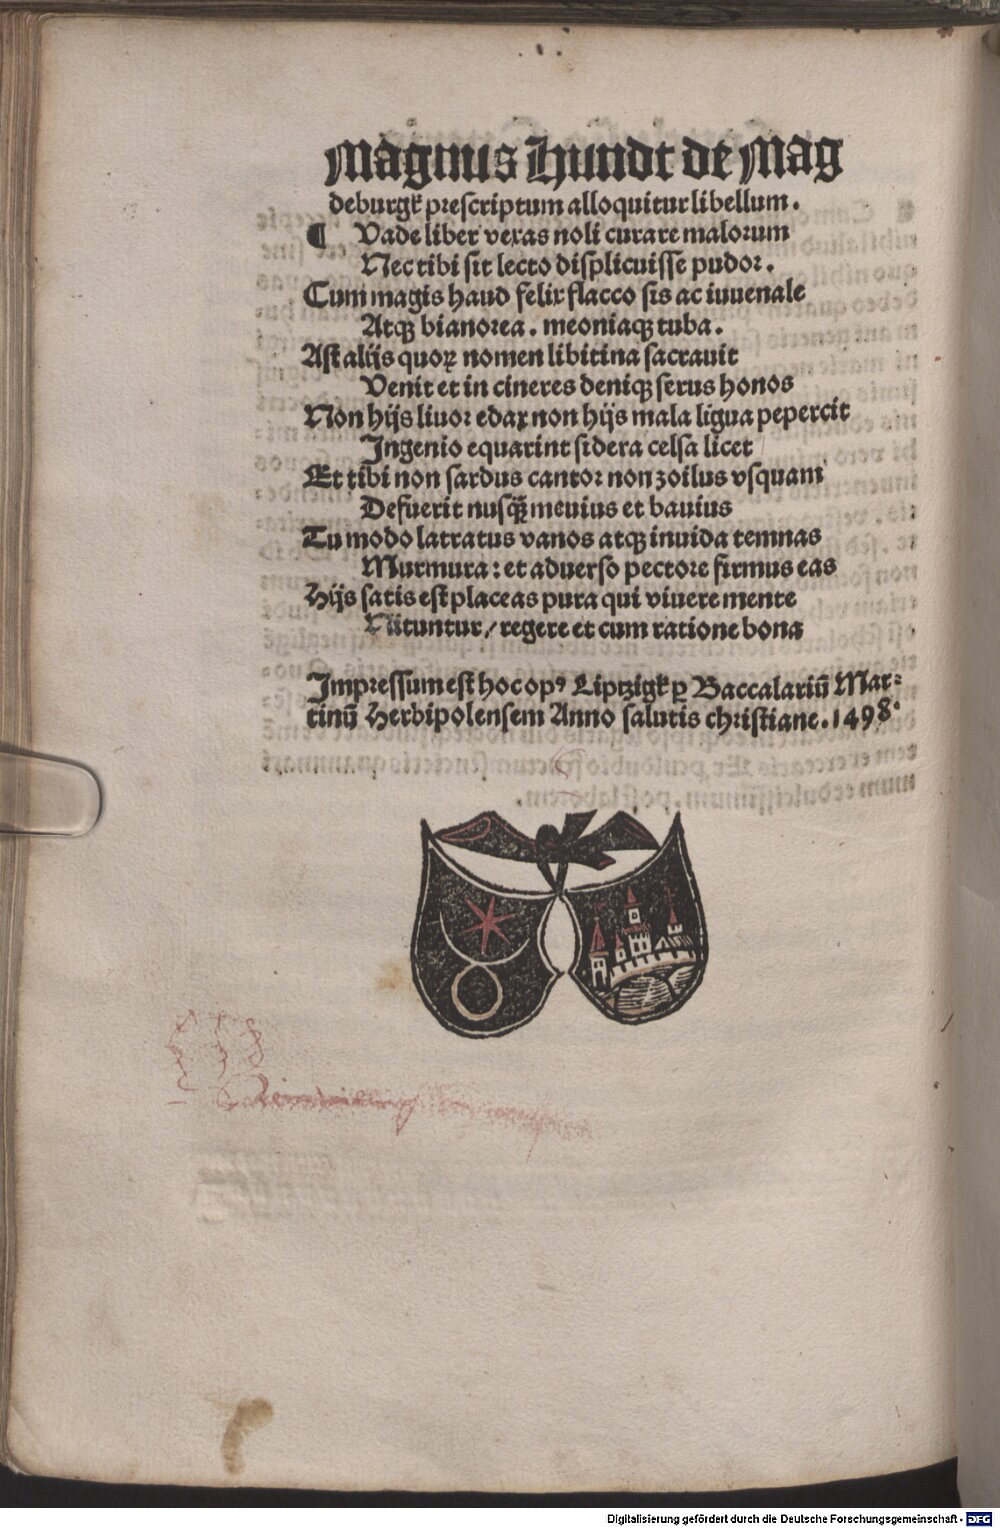 Magnus Hundt de Mag
deburgk prescriptum alloquitur libellum.
¶ Vade liber vexas noli curare malorum
Nec tibi sit lecto displicuisse pudor.
Cum magis haud felix flacco sis ac iuuenale
Atqꝫ bianorea. meoniaqꝫ tuba.
Ast alijs quoꝝ nomen libitina sacrauit
Venit et in cineres deniqꝫ serus honos
Non hijs liuor edax non hijs mala ligua pepercit
Ingenio equarint sidera celsa licet
Et tibi non sardus cantor non zoilus vsquam
Defuerit nusqꝫ̃ meuius et bauius
Tu modo latratus vanos atqꝫ inuida temnas
Murmura: et aduerso pectore firmus eas
Hijs satis est placeas pura qui viuere mente
Nituntur/ regere et cum ratione bona
Impressum est hoc opꝰ Liptzigk ꝑ Baccalariū Mar-
tinū Herbipolensem Anno salutis christiane. 1498.
Digitalisierung gefördert durch die Deutsche Forschungsgemeinschaft - DFG